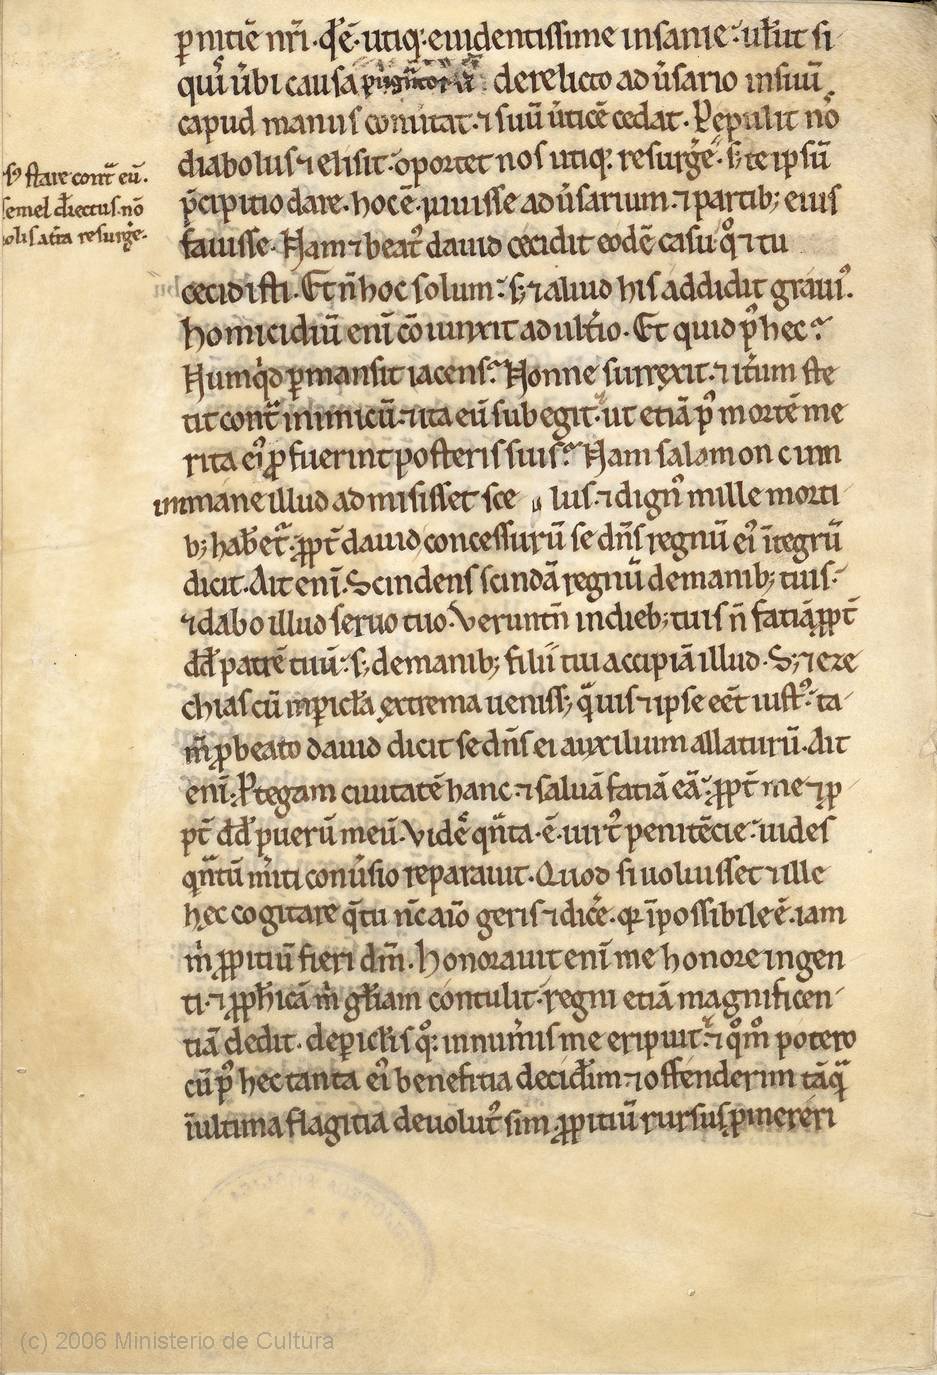 ꝑnitiē nr̄i · qd̓ ē · utiq; · euidentissime insanie · uł ut si
quis u̓bi causa derelicto adu̓sario insuū
caput manus comittat · ⁊ suū u̓ticē cedat · Repulit nos
diabolus ⁊ elisit · oportet nos utiq; resurgē · s; te ipsū
p̄cipitio dare · hoc ē · iuuisse adu̓sarium · ⁊ partib; eius
s; stare cont̄ eū ·
semel deiectus · nō
olis at̄ra resurge ·
fauisse · Nam ⁊ beatꝰ dauid cecidit eodē casu qͦ ⁊ tu
cecidisti · Et n̄ hoc solum · s; ⁊ aliud his addidit grauiꝰ ·
homicidiū enī cōiunxit adult̓io · Et quid pꝰ hec ?
Numqͥd ꝑmansit iacens ? Nonne surrexit · ⁊ it̓um ste
tit cont̄ inimicū · ⁊ ita eū subegit · ut etiā pꝰ mortē me
rita eiꝰ ꝓfuerint posteris suis ? Nam salamon cum
immane illud admisisset sce lus · ⁊ dignꝰ mille morti
b; hab̓et̄ · ꝓpt̄ dauid concessurū se dn̄s regnū ei ītegrū
dicit · Ait enī · Scindens scindā regnū de manib; tuis ·
⁊ dabo illud seruo tuo · Verunt̄n in dieb; tuis n̄ fatiā ꝓpt̄
dd̄ patrē tuū · s; de manib; filii tui accipiā illud · S; ⁊ eze
chias cū in ꝑicła extrema ueniss; q̄uis ⁊ ipse eēt iustꝰ · ta
m̄ ꝓ beato dauid dicit se dn̄s ei auxilium allaturū · Ait
enī · Protegam ciuitatē hanc · ⁊ saluā fatiā eā · ꝓpt̄ me ⁊ ꝓ
pt̄ dd̄ puerū meū · Vidē qn̄ta · ē · uirtꝰ penitēcie · uides
qn̄tū m̓iti conu̓sio reparauit · Quod si uoluisset ⁊ ille
hec cogitare q̄ tu nc̄ aīo geris ⁊ dic̓e · qr īpossibile ē · iam
m̓ ꝓpitiū fieri dn̄m · honorauit enī me honore ingen
ti · ⁊ ꝓph̓icā m̓ gła̅m contulit · regni etiā magnificen
tiā dedit · de ꝑicłis qͦ; innum̓is me eripuit · ⁊ qͦm̄ potero
cū pꝰ hec tanta eiꝰ benefitia decid̓im · ⁊ offenderim tāq̄
ī ultima flagitia deuolutꝰ sim · ꝓpitiū rursus ꝓmereri
(c) 2006 Ministerio de Cultura